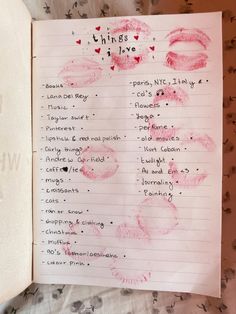 things
i love
- Books
- Lana Del Rey
- Music
- Taylor Swift
- Pinterest
- lipstick & red nail polish
- Girly things
- Andrew Garfield
- coffee
- mugs
- croissants
- cats
- rain or snow
- shopping & clothing
- christmas
- muffins
- 90's fashion/aesthetic
- colour pink
- paris, NYC, Italy
- cd's
- flowers
- Yoga
- perfume
- old movies
- Kurt Cobain
- twilight
- Journaling
- Painting